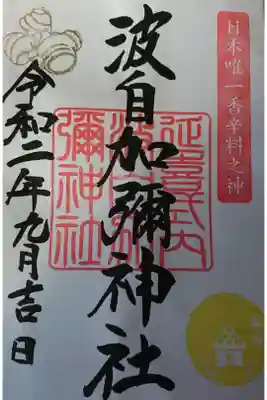 日本唯一香辛料之神
波自加彌神社
延喜式内
波自加
彌神社
令和二年九月吉日